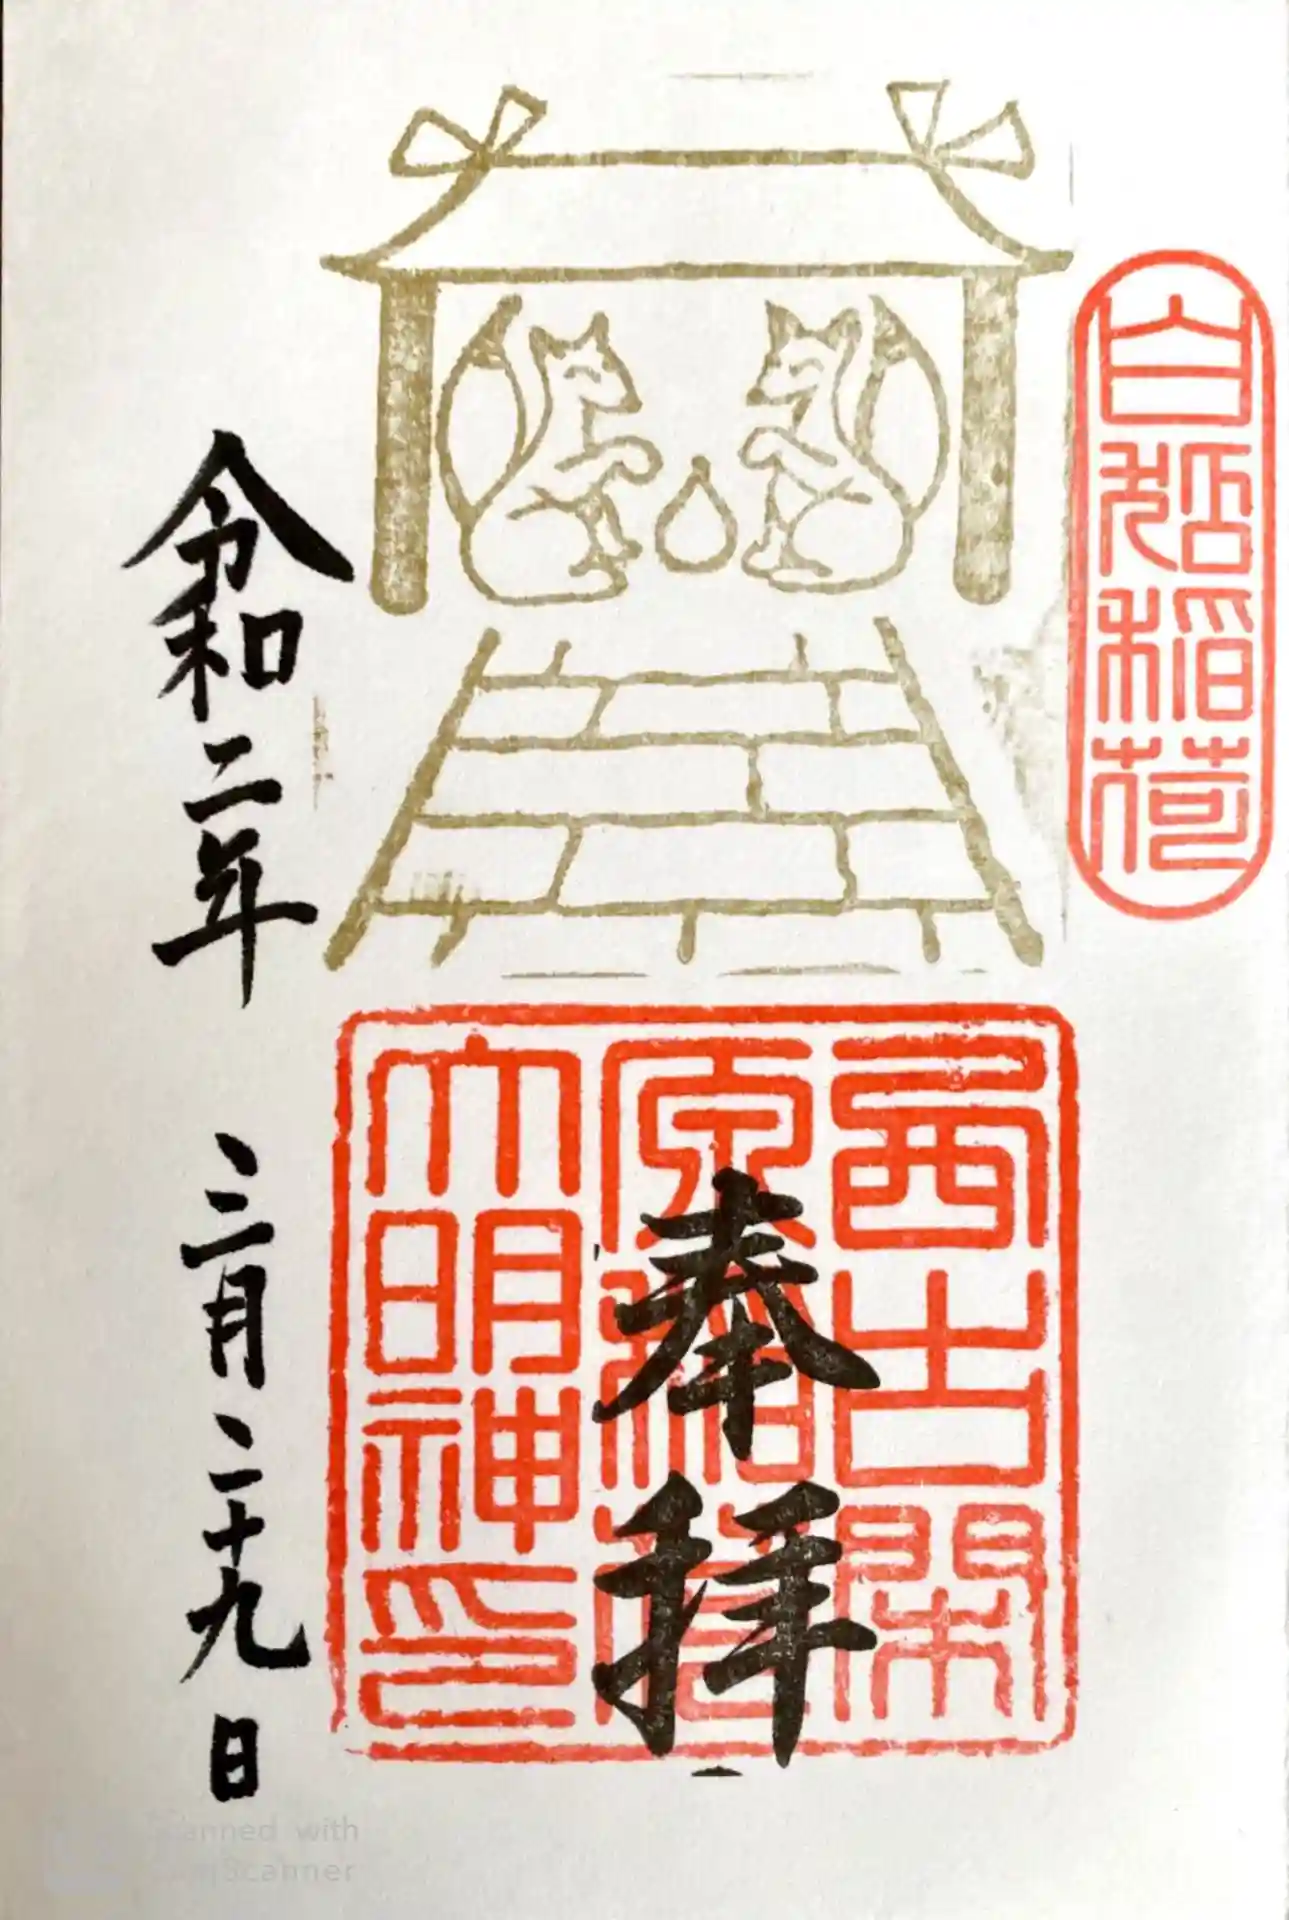 白狐稲荷
奉拝
原稲荷
大明神印
令和二年 三月二十九日
Scanned with
CamScanner